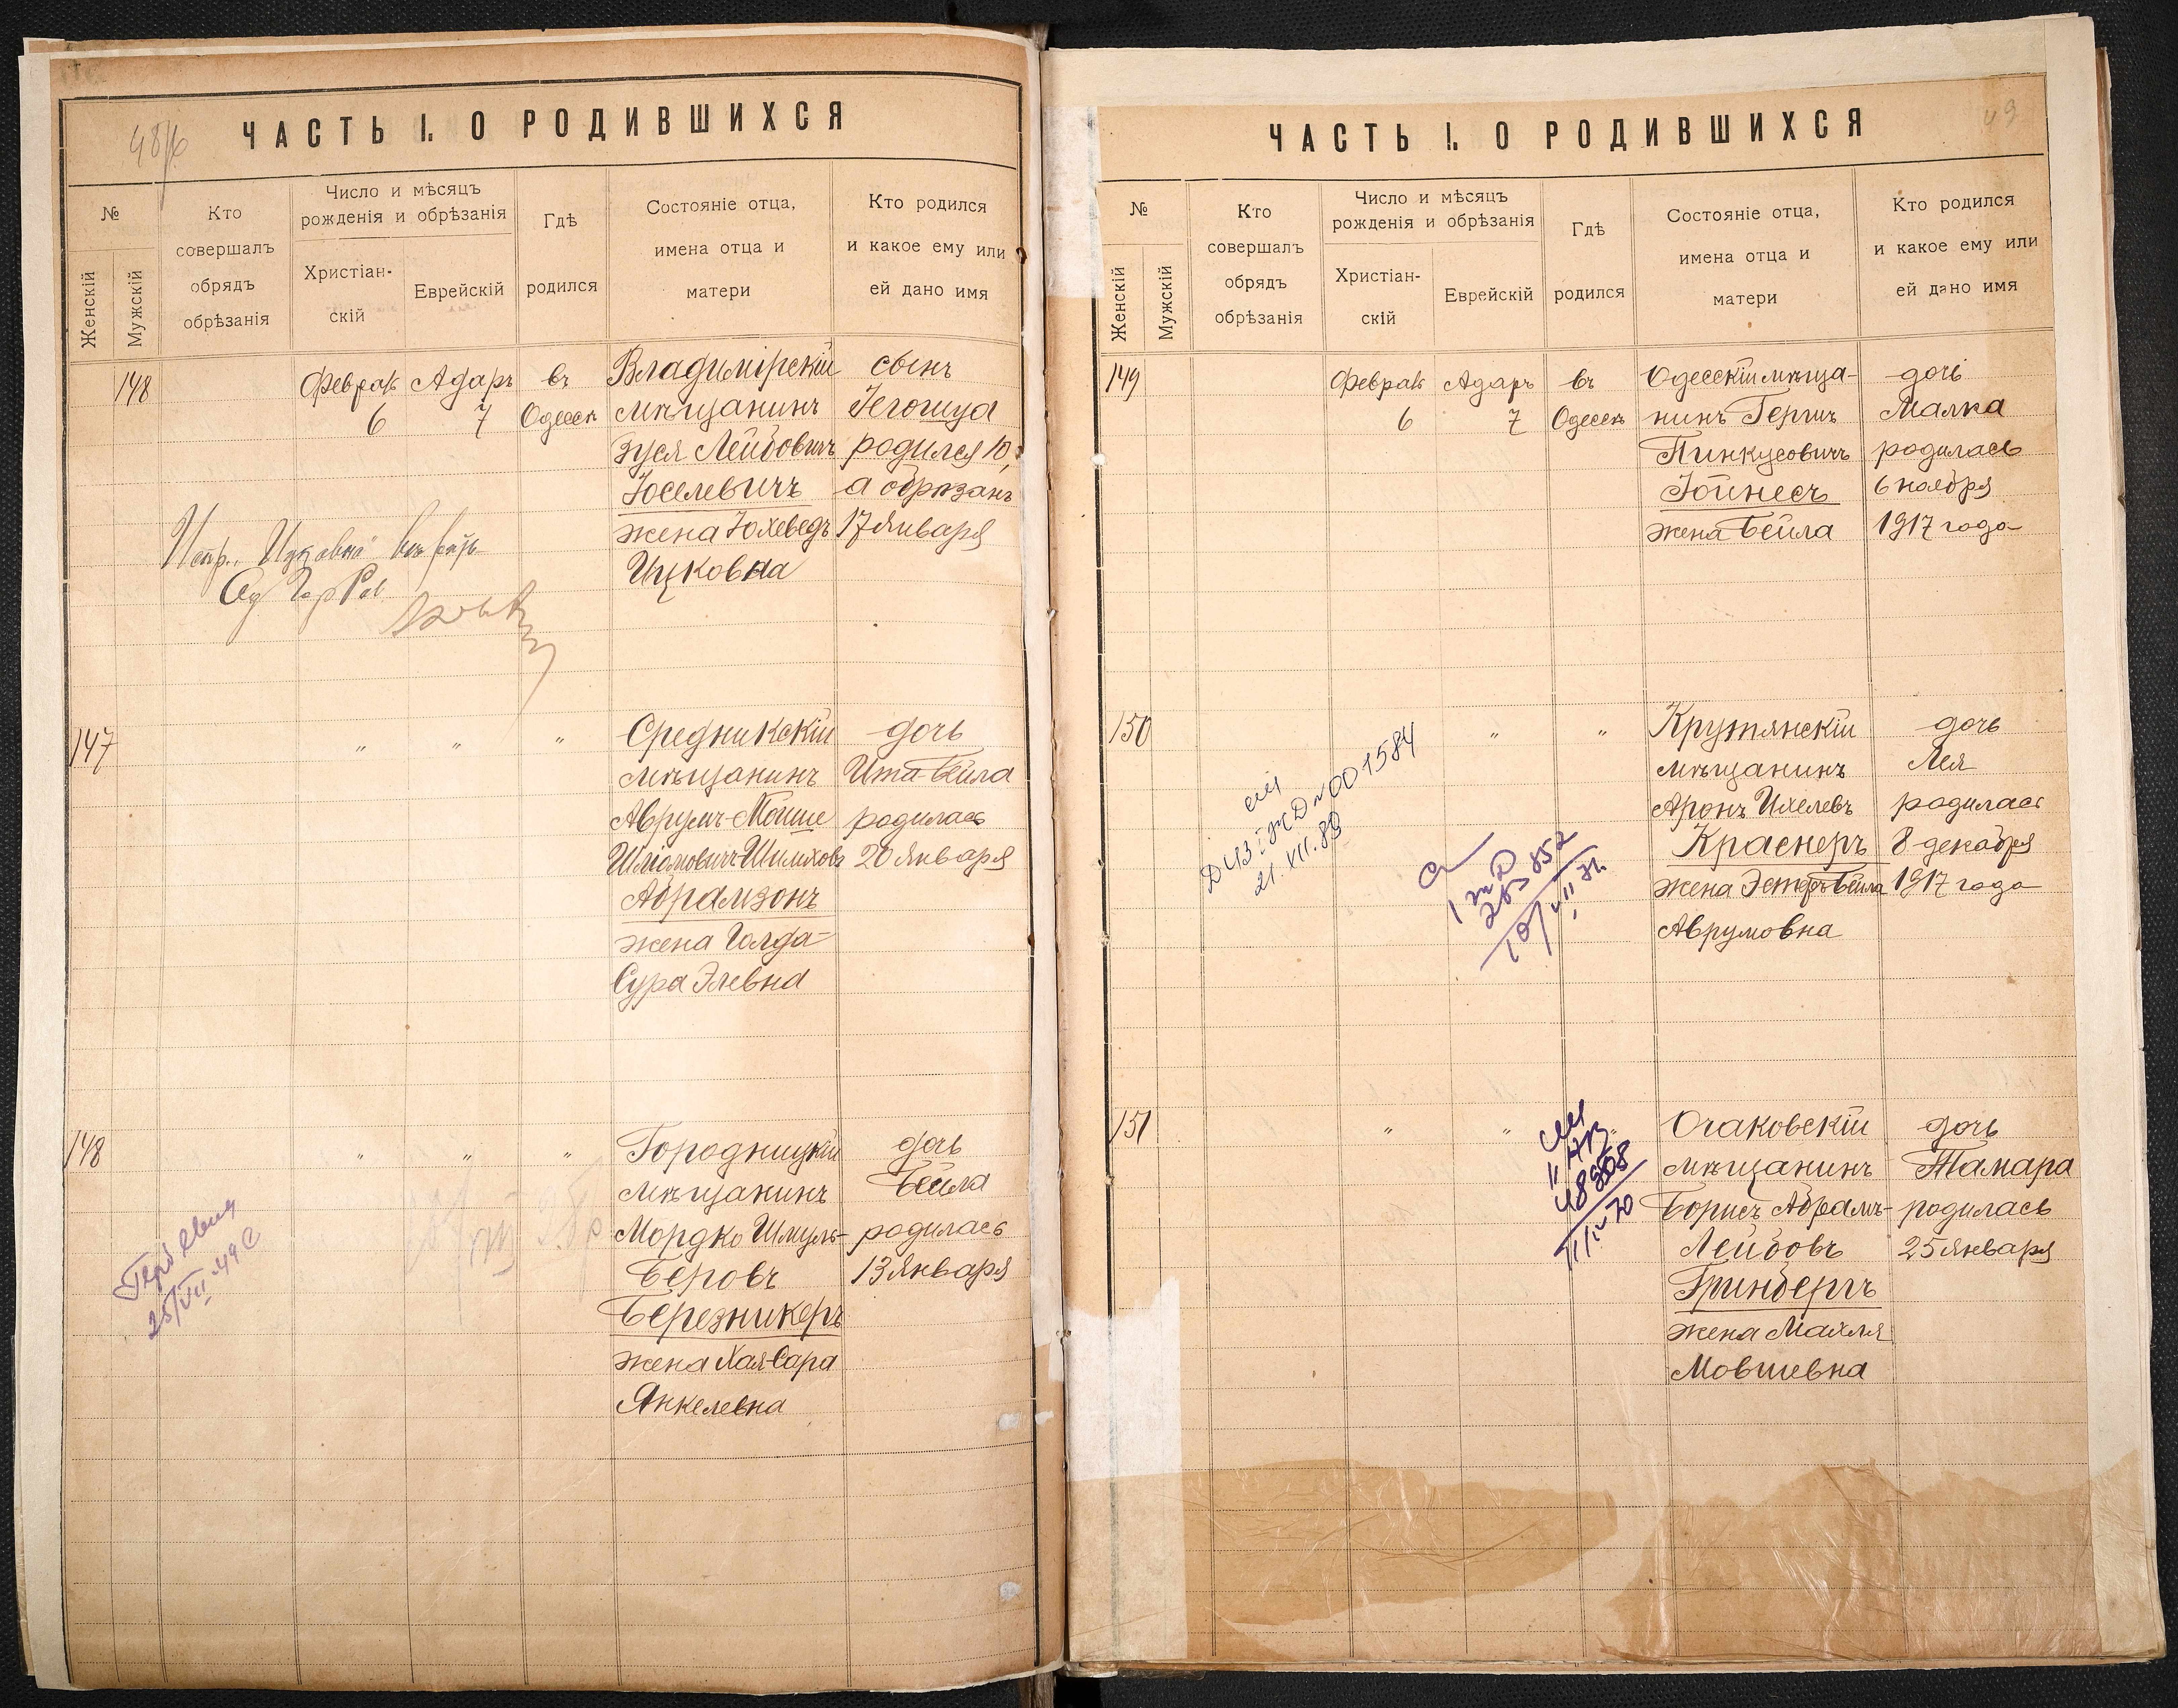 48/6
ЧАСТЬ I. О РОДИВШИХСЯ
№
Женскій
Мужскій
Кто
совершалъ
обрядъ
обрѣзанія
Число и мѣсяцъ
рожденія и обрѣзанія
Христіан-
скій
Еврейскій
Гдѣ
родился
Состояніе отца,
имена отца и
матери
Кто родился
и какое ему или
ей дано имя
148
Феврал
6
Адаръ
7
въ
Одессѣ
Владимірскій
мѣщанинъ
Зуся Лейбовичъ
Юселевичъ
жена Юхеведъ
Ицковна
сынъ
Іегошуа
родился 10,
а обрѣзанъ
17 января
Испр. „Ицковна"
147
"
"
"
Средникскій
мѣщанинъ
Аврумъ-Мойше
Шліомовичъ-Шимховъ
Абрамзонъ
жена Голда-
Сура Элевна
дочь
Ита-Бейла
родилась
20 января
148
"
"
"
Городницкій
мѣщанинъ
Мордко Шмуль-
Беровъ
Березникеръ
жена Хая-Сара
Янкелевна
дочь
Бейла
родилась
13 января
25/VII-49
49
ЧАСТЬ I. О РОДИВШИХСЯ
№
Женскій
Мужскій
Кто
совершалъ
обрядъ
обрѣзанія
Число и мѣсяцъ
рожденія и обрѣзанія
Христіан-
скій
Еврейскій
Гдѣ
родился
Состояніе отца,
имена отца и
матери
Кто родился
и какое ему или
ей дано имя
149
Феврал
6
Адаръ
7
въ
Одессѣ
Одесскій мѣща-
нинъ Гершъ
Пинкусовичъ
Іойнесъ
жена Бейла
дочь
Малка
родилась
6 ноября
1917 года
150
"
"
Крутянскій
мѣщанинъ
Аронъ Ихелевъ
Краснеръ
жена Эстеръ-Бейла
Аврумовна
дочь
Лея
родилась
8 декабря
1917 года
№001584
21.VII.89
151
"
"
"
Очаковскій
мѣщанинъ
Борисъ Абрамъ-
Лейбовъ
Гринбергъ
жена Махля
Мовшевна
дочь
Тамара
родилась
25 января